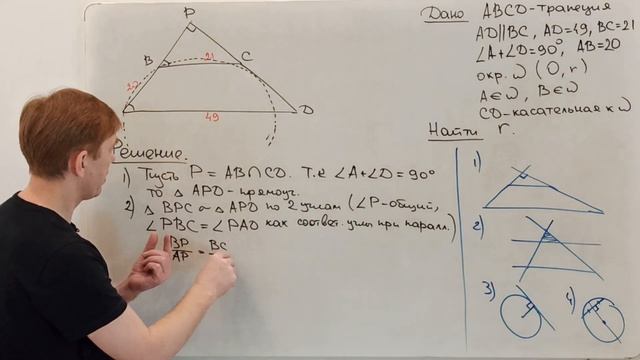 Дано ABCD-трапеция
AD||BC, AD=49, BC=21
∠A+∠D=90°, AB=20
окр. ω (O, r)
A∈ω, B∈ω
CD-касательная к ω
Найти r.
P
B
21
C
49
D
Решение.
1) Пусть P = AB∩CD. Т.к ∠A+∠D=90°
то △ APD-прямоуг.
2) △ BPC ~ △ APD по 2 углам (∠P-общий,
∠PBC=∠PAD как соответ. углы при паралл.)
BP/AP = BC
1)
2)
3)
4)